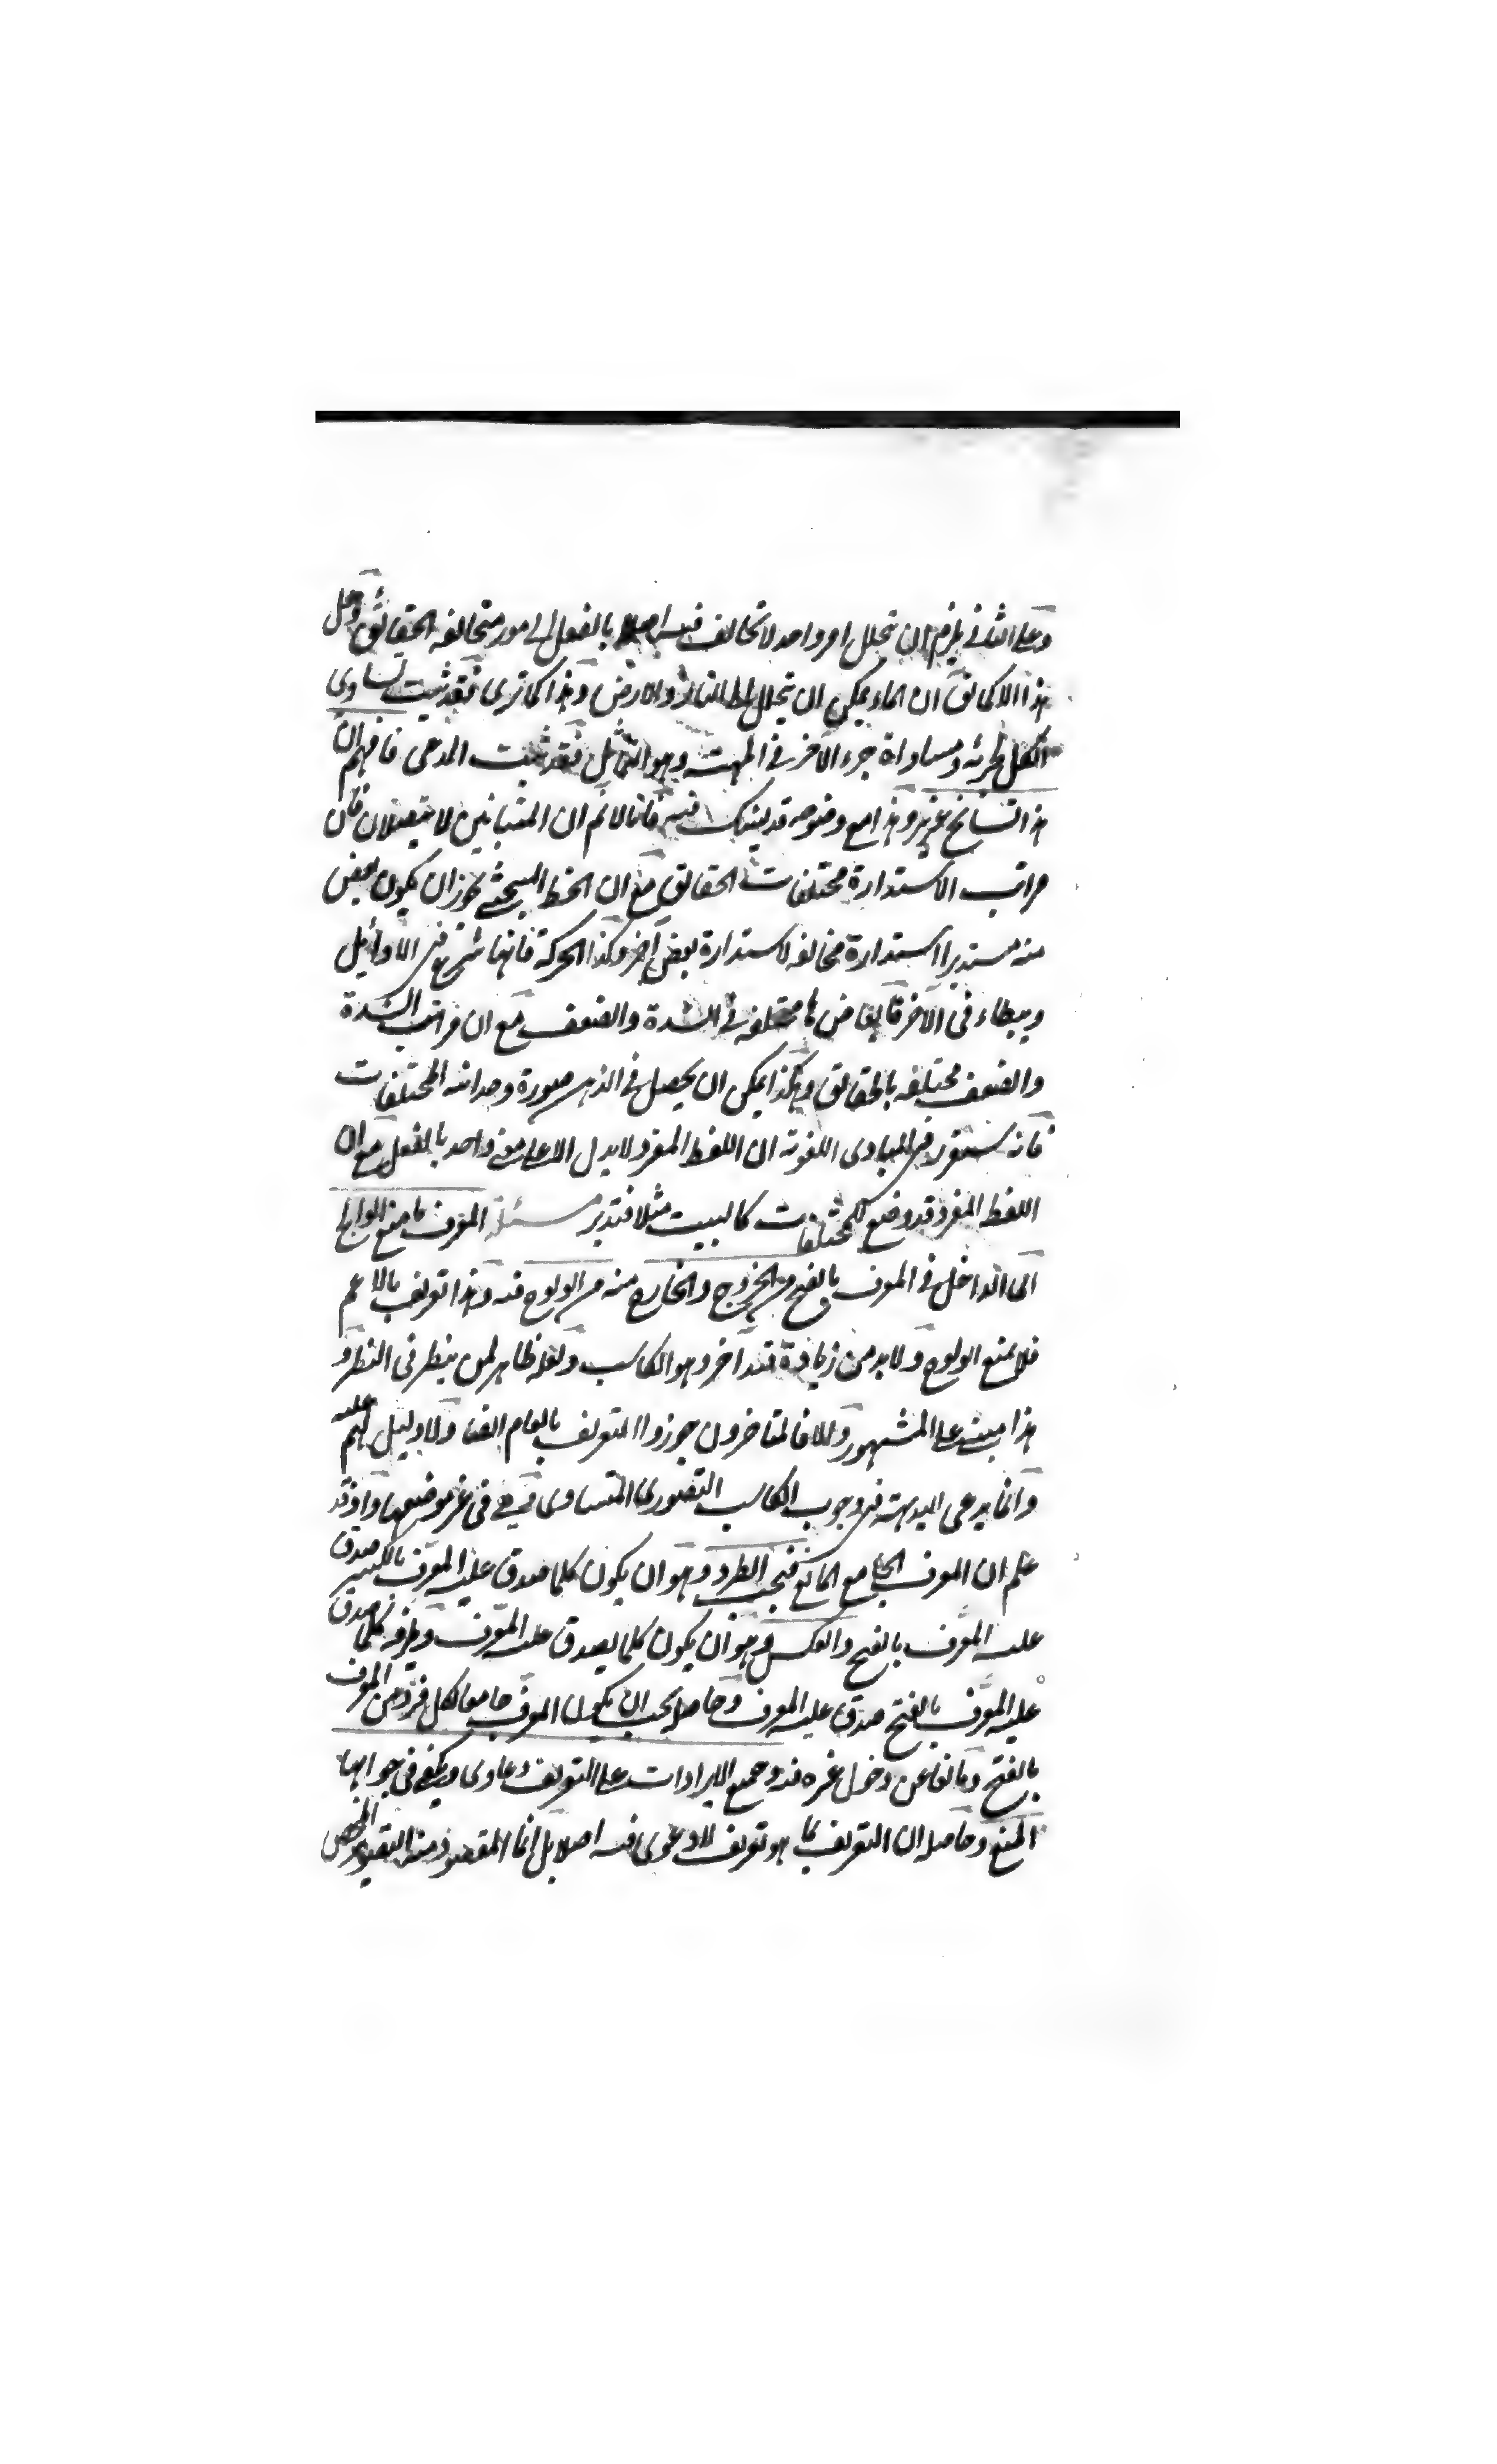 وعلى الثاني يلزم ان تحلل امر واحد لا تخالف فيه اصلا بالفعل الى امور متخالفة الحقائق وهل
هذا الا كما يق ان الماء يمكن ان يتحلل الى النار والارض وهذا كما ترى فقد ثبت تساوى
الكل لجزئه ومساواة جزء الآخر في المهية وهو التماثل فقد ثبت المدعى فافهم ان
هذا السانح عزيز وهذا مع وضوحه قد يشك فيه فانا لا نم ان المتباينين لا يتصلان فان
مراتب الاستدارة مختلفات الحقائق مع ان الخط يجوز ان يكون بعض
منه مستديرا استدارة مخالفة لاستدارة بعض آخر وكذا الحركة فانها تسرع في الاوائل
ويبطاء في الآخر فابعاضها مختلفة في الشدة والضعف مع ان مراتب الشدة
والضعف مختلفة بالحقائق وهكذا يمكن ان يحصل في الذهن صورة وحدانية للمختلفات
فانه سيقرر في المبادى اللغوية ان اللفظ المفرد لا يدل الا على معنى واحد بالفعل مع ان
اللفظ المفرد قد وضع للمختلفات كالبيت مثلا فتدبر مسئلة المعرف ما منع الوالج
اى الداخل في المعرف بالفتح من الخروج والخارج منه من الولوج فيه وهذا تعريف بالاعم
فلا يمنع الولوج ولا بد من زيادة قيد آخر وهو الكاسب ولعله ظاهر لمن ينظر في النظر و
هذا مبني على المشهور والا فالمتاخرون جوزوا التعريف بالعام ايضا ولا دليل لهم عليه
وانما يدعى البديهة في وجوب الكاسب التصورى المتساوى فهي في غير موضعها واذ قد
علم ان المعرف الجامع المانع فيجب الطرد وهو ان يكون كلما صدق عليه المعرف بالكسر صدق
عليه المعرف بالفتح والعكس وهو ان يكون كلما يصدق عليه المعرف كلما صدق
عليه المعرف بالفتح صدق عليه المعرف وحاصله يجب ان يكون المعرف جامعا لكل فرد من المعرف
بالفتح ومانعا عن دخول غيره فيه وجميع الايرادات على التعريف دعاوى ويكفى في جوابها
المنع وحاصله ان التعريف بما هو تعريف لا دعوى فيه اصلا بل انما المقصود منه التصوير المحض